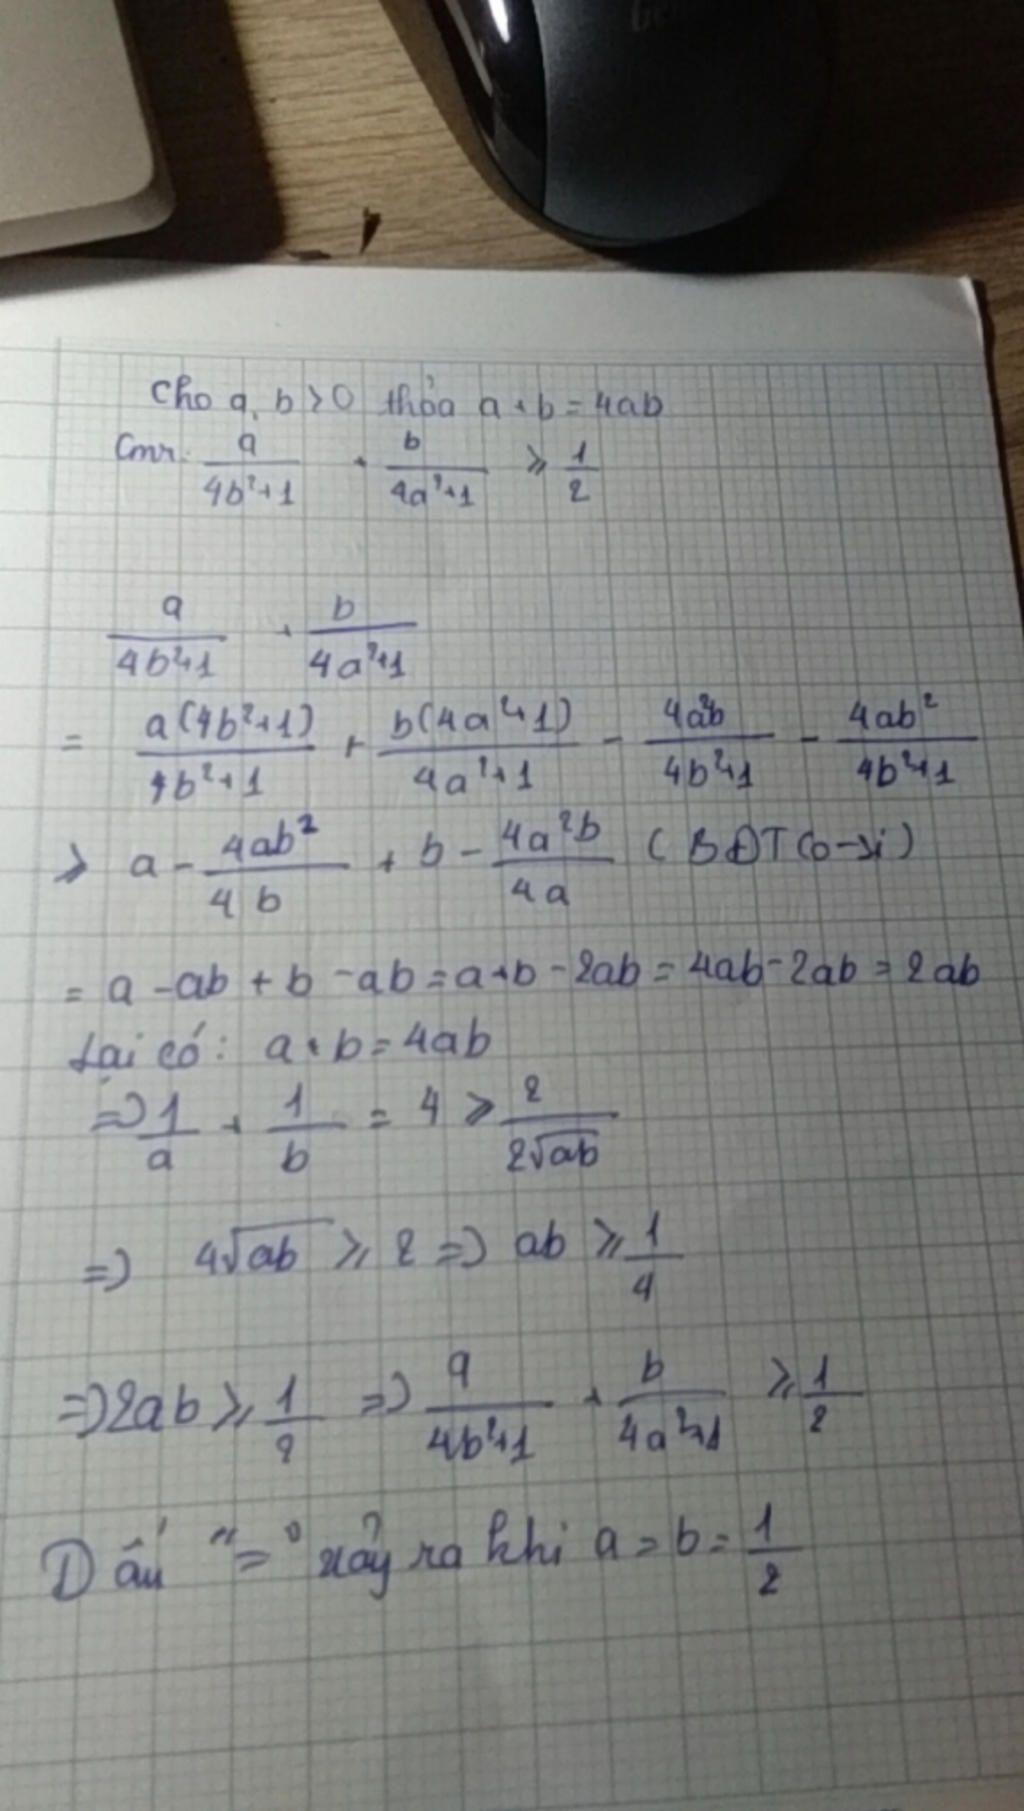 Cho a, b > 0 thỏa a + b = 4ab
Cmr: a/(4b²+1) + b/(4a²+1) ≥ 1/2
a/(4b²+1) + b/(4a²+1)
= a(4b²+1)/(4b²+1) + b(4a²+1)/(4a²+1) - 4a²b/(4b²+1) - 4ab²/(4b²+1)
≥ a - 4ab²/4b + b - 4a²b/4a (BĐT Cô-si)
= a - ab + b - ab = a+b - 2ab = 4ab - 2ab = 2ab
Lại có: a + b = 4ab
=> 1/a + 1/b = 4 ≥ 2/(2√ab)
=> 4√ab ≥ 2 => ab ≥ 1/4
=> 2ab ≥ 1/2 => a/(4b²+1) + b/(4a²+1) ≥ 1/2
Dấu "=" xảy ra khi a = b = 1/2